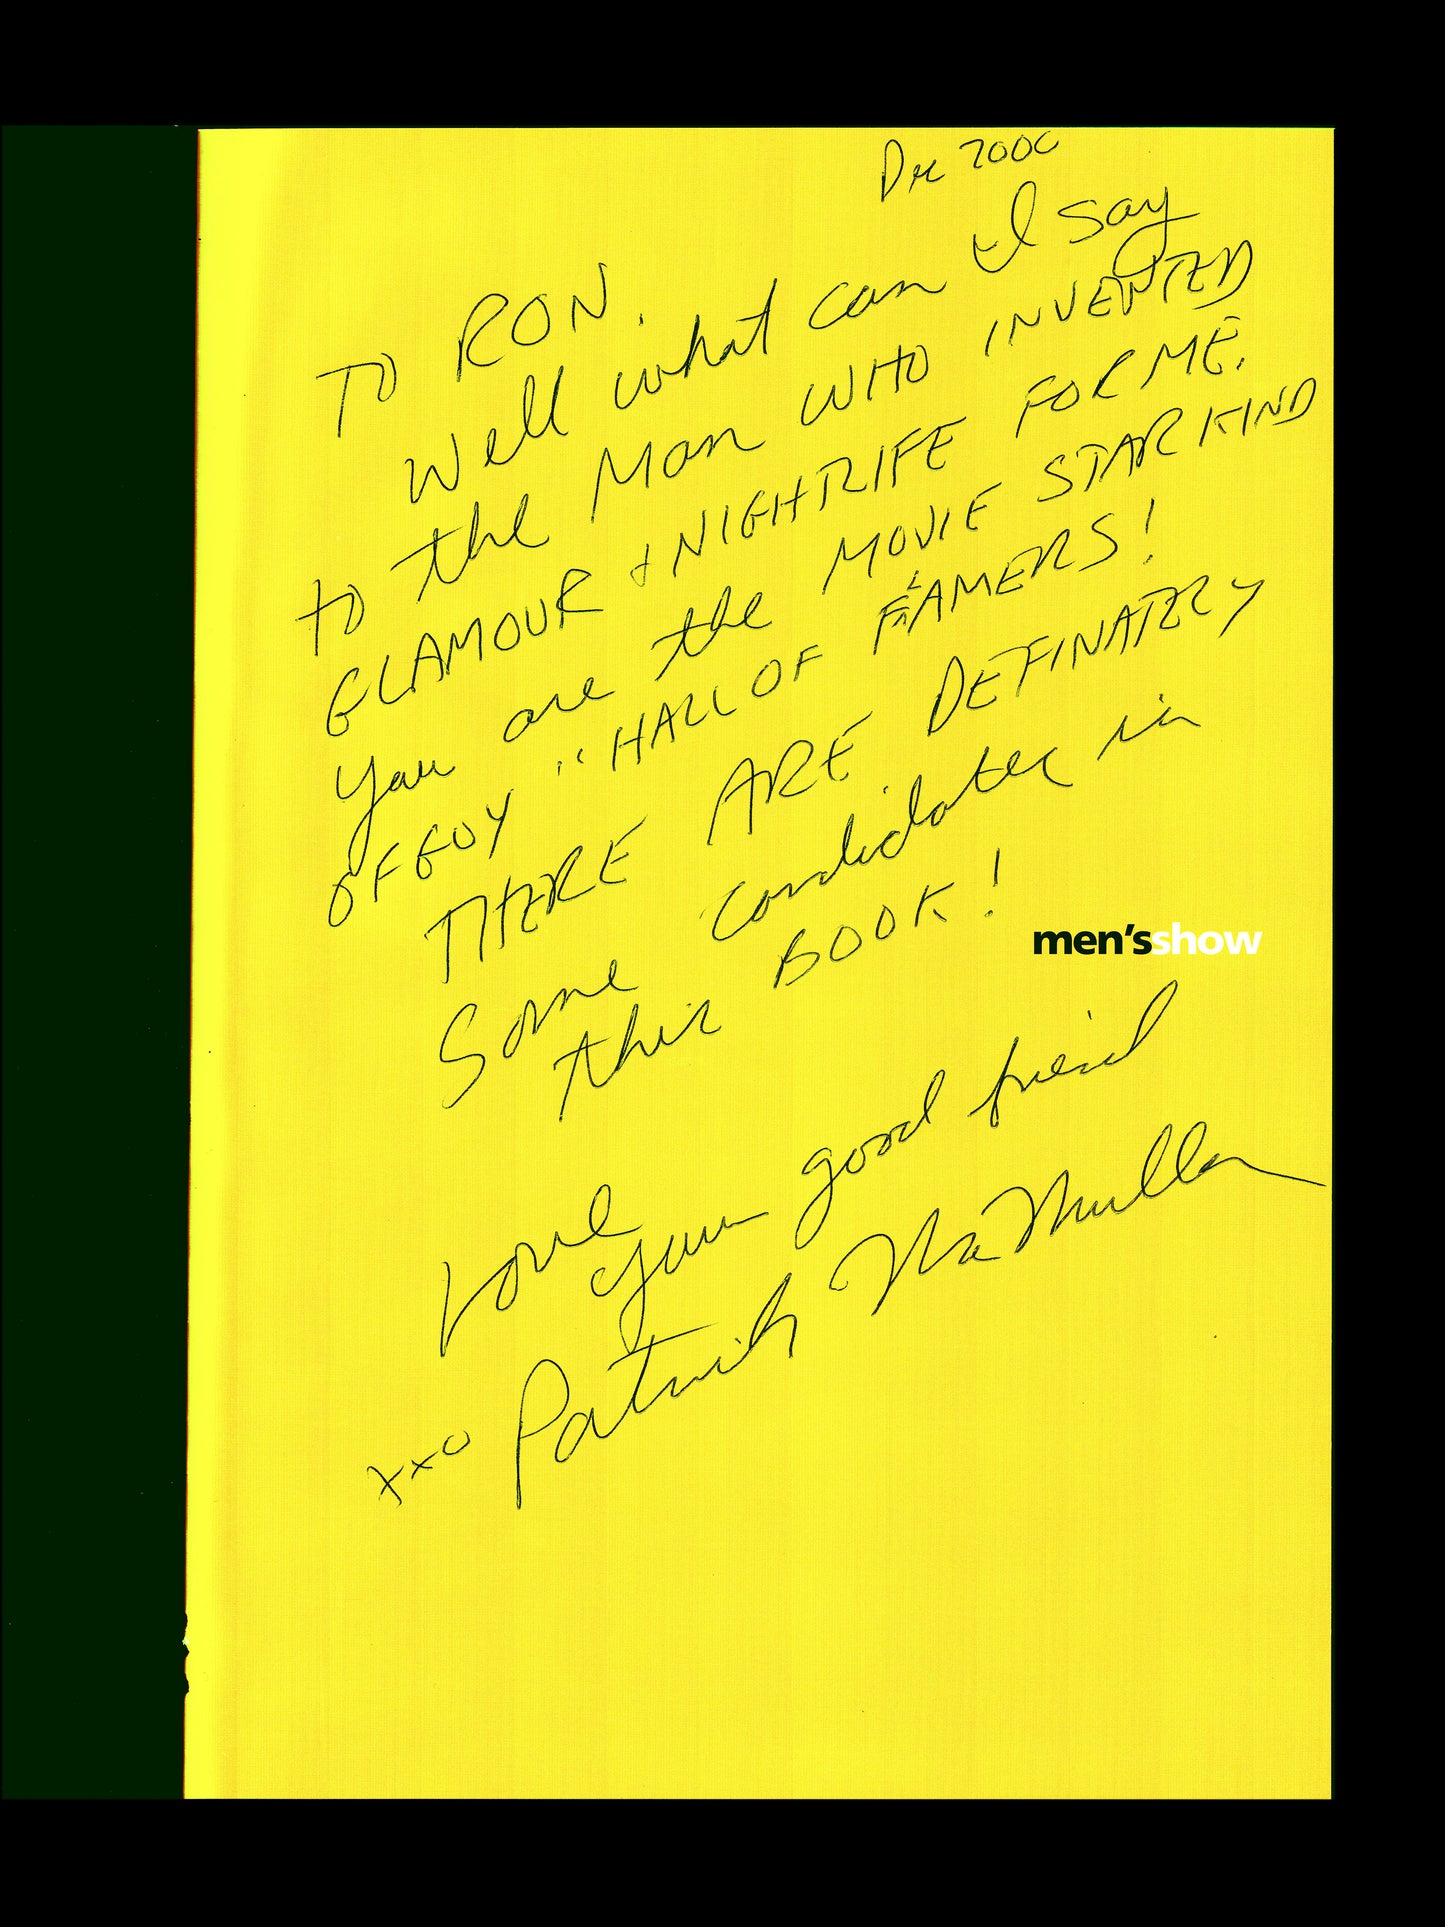 Dec 2000
TO RON.
Well what can I say
to the Man WHO INVENTED
GLAMOUR & NIGHTLIFE FOR ME.
You are the MOVIE STAR KIND
OF GUY "HALL OF FAMERS!
THERE ARE DEFINATELY
Some candidates in
this BOOK!
men'sshow
Love
Your good friend
Patrick McMullan
xxo